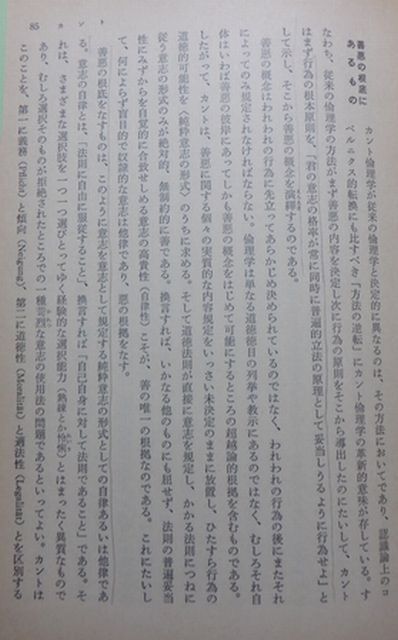 85 カント
善悪の根底に
あるもの
カント倫理学が従来の倫理学と決定的に異なるのは、その方法においてであり、認識論上のコ
ペルニクス的転換にも比すべき「方法の逆転」にカント倫理学の革新的意味が存している。す
なわち、従来の倫理学の方法がまず善悪の内容を決定し次に行為の原則をそこから導出したのにたいして、カント
はまず行為の根本原則を、「君の意志の格率が常に同時に普遍的立法の原理として妥当しうるように行為せよ」と
して示し、そこから善悪の概念を演繹するのである。
善悪の概念はわれわれの行為に先立ってあらかじめ決められているのではなく、われわれの行為の後にまたそれ
によってのみ規定されなければならない。倫理学は単なる道徳徳目の列挙や教示にあるのではなく、むしろそれ自
体はいわば善悪の彼岸にあってしかも善悪の概念をはじめて可能にするところの超越論的根拠を含むものである。
したがって、カントは、善悪に関する個々の実質的な内容規定をいっさい未決定のままに放置し、ひたすら行為の
道徳的可能性を〈純粋意志の形式〉のうちに求める。そして道徳法則が直接に意志を規定し、かかる法則につねに
従う意志の形式のみが絶対的、無制約的に善である。換言すれば、いかなる他のものにも屈せず、法則の普遍妥当
性にみずからを自覚的に合致せしめる意志の高貴性（自律性）こそが、善の唯一の根拠なのである。これにたいし
て、何によらず盲目的で奴隷的な意志は他律であり、悪の根拠をなす。
善悪の根底をなすものは、このように意志を意志として規定する純粋意志の形式としての自律あるいは他律であ
る。意志の自律とは、「法則に自由に服従すること」、換言すれば「自己自身に対して法則であること」である。そ
れは、さまざまな選択肢を一つ一つ選びとってゆく経験的な選択能力（熟練とか怜悧）とはまったく異質なもので
あり、むしろ選択そのものが拒絶されたところでの一種苛烈な意志の使用法の問題であるといってよい。カントは
このことを、第一に義務（Pflicht）と傾向（Neigung）、第二に道徳性（Moralität）と適法性（Legalität）とを区別する